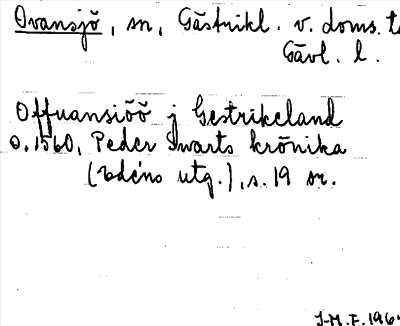 Ovansjö, sn, Gästrikl. v. doms. t
Gävl. l.
Offuansiöö j Gestrikeland
o. 1560, Peder Swarts krönika
(Edéns utg.), s. 19 m.
J-M. F. 196